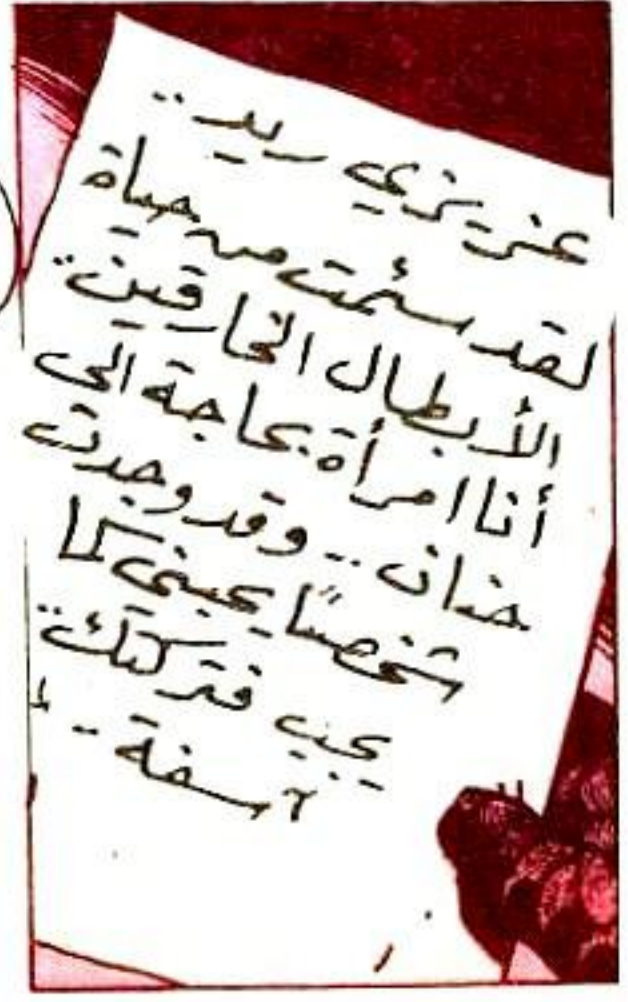 عزيزي ريد..
لقد سئمت من حياة
الأبطال الخارقين..
أنا امرأة بحاجة الى
حنان .. وقد وجدت
شخصًا يحبني كما
يجب فتركتك..
آسفة ..!